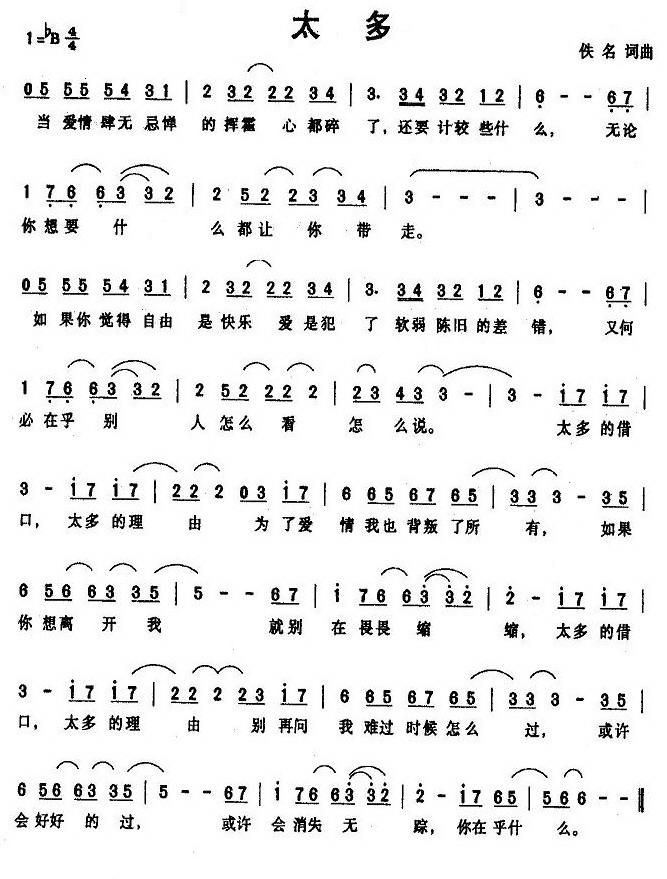 太多
1=♭B 4/4
佚名 词曲
05 55 54 31 | 2 32 22 34 | 3. 34 32 12 | 6 - - 67 |
当 爱情 肆无 忌惮 的 挥霍 心 都碎 了，还要 计较 些什 么， 无论
1 76 63 32 | 2 52 23 34 | 3 - - - | 3 - - - |
你 想要 什 么 都让 你 带 走。
05 55 54 31 | 2 32 22 34 | 3. 34 32 12 | 6 - - 67 |
如 果你 觉得 自由 是 快乐 爱 是犯 了 软弱 陈旧 的差 错， 又何
1 76 63 32 | 2 52 22 2 | 23 43 3 - | 3 - i7 i7 |
必 在乎 别 人 怎么 看 怎 么 说。 太多 的借
3 - i7 i7 | 22 2 03 i7 | 6 65 67 65 | 33 3 - 35 |
口， 太多 的理 由 为 了爱 情 我也 背叛 了所 有， 如果
6 56 63 35 | 5 - - 67 | i 76 63 32 | 2 - i7 i7 |
你 想离 开 我 就别 在 畏畏 缩 缩， 太多 的借
3 - i7 i7 | 22 2 23 i7 | 6 65 67 65 | 33 3 - 35 |
口， 太多 的理 由 别 再问 我 难过 时候 怎么 过， 或许
6 56 63 35 | 5 - - 67 | i 76 63 32 | 2 - i7 65 | 56 6 - - ‖
会 好好 的 过， 或许 会 消失 无 踪， 你在 乎什 么。